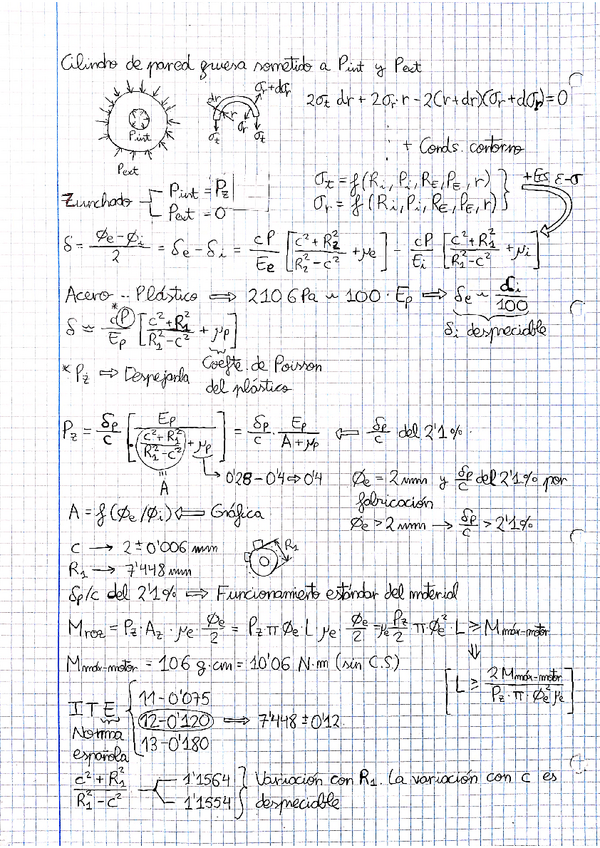 Cilindro de pared gruesa sometido a Pint y Pext
dr σr+dσr
r σr
σt σt
Pint
Pext
2σt dr + 2σr·r - 2(r+dr)(σr+dσr)=0
+ Conds. contorno
σt = f(Ri, Pi, RE, PE, r)
σr = f(Ri, Pi, RE, PE, r)
+Es. ε-σ
Zunchado
Pint = Pz
Pext = 0
δ = (Øe-Øi)/2 = δe - δi = cP/Ee [(c²+R2²)/(R2²-c²) + μe] - cP/Ei [(c²+R1²)/(R1²-c²) + μi]
Acero -- Plástico ⇒ 210 GPa ~ 100 · Ep ⇒ δe ~ di/100
δi despreciable
δ ≈ cP*/Ep [(c²+R1²)/(R1²-c²) + μp]
Coefte. de Poisson
del plástico
* Pz ⇒ Despejarla
Pz = δp/c [Ep/((c²+R1²)/(R1²-c²) + μp)] = δp/c · Ep/(A+μp) ⇐ δp/c del 2'1%
A
0'28-0'4⇒0'4
Øe = 2 mm y δp/c del 2'1% por
fabricación
Øe > 2 mm → δp/c > 2'1%
A = f(Øe/Øi) ⇐ Gráfica
c → 2 ± 0'006 mm
R1 → 7'448 mm
R1
δp/c del 2'1% ⇒ Funcionamiento estándar del material
Mroz = Pz·Az·μe·Øe/2 = Pz π Øe·L μe·Øe/2 = μe Pz/2 π Øe²·L ≥ Mmáx-motor
Mmáx-motor = 106 g·cm = 10'06 N·m (sin C.S)
[L ≥ 2Mmáx-motor/(Pz·π·Øe² μe)]
ITE
Norma
española
11-0'075
12-0'120 ⇒ 7'448 ± 0'12
13-0'180
(c²+R1²)/(R1²-c²)
1'1564
1'1554
Variación con R1. La variación con c es
despreciable